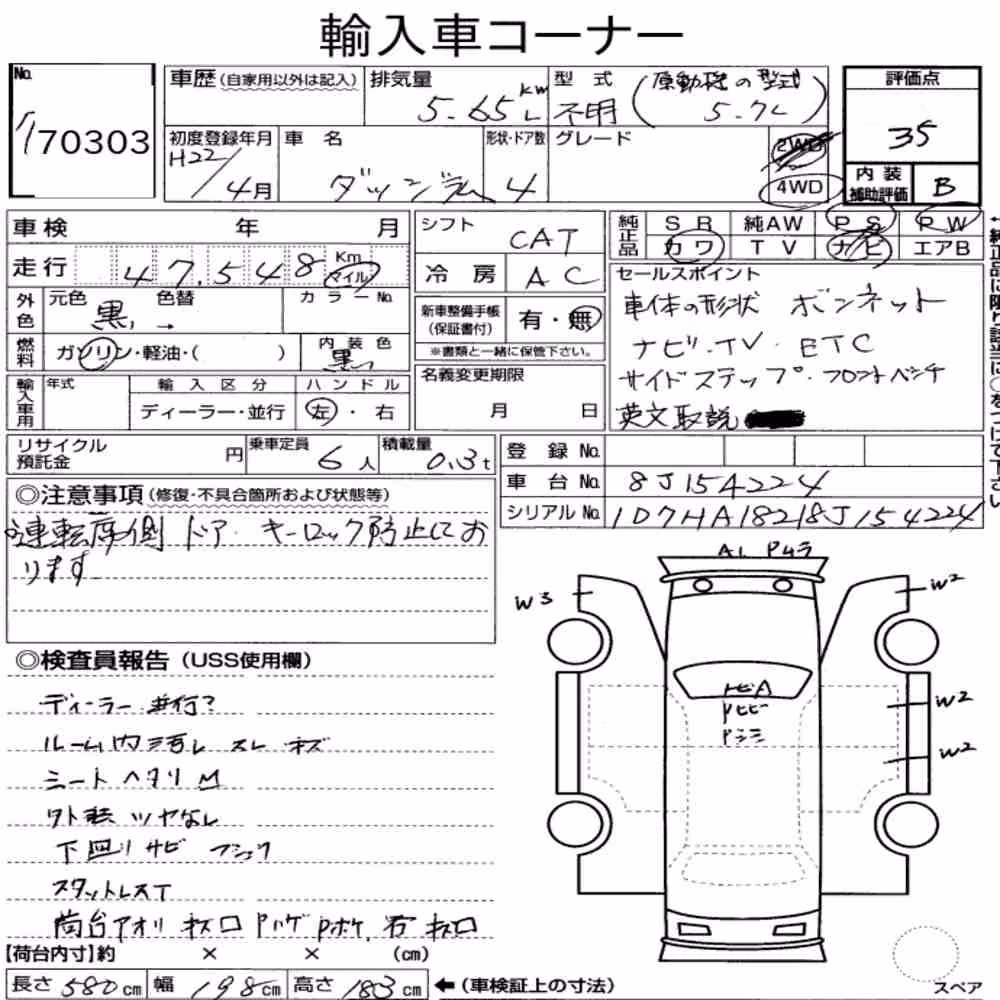 輸入車コーナー
No. 車歴 (自家用以外は記入) 排気量 型式 (原動機の型式 評価点
5.65L Kw 不明 5.7L)
170303 35
初度登録年月 車名 形状・ドア数 グレード 2WD
H22/4月 ダッジラム 4 4WD 内装補助評価 B
車検 年 月 シフト CAT 純正品 SR 純AW PS PW
カワ TV ナビ エアB
走行 47,548 Km マイル 冷房 AC セールスポイント
外色 元色 黒 色替 → カラーNo. 新車整備手帳 (保証書付) 有・無 車体の形状 ボンネット
※書類と一緒に保管下さい。 ナビ・TV・ETC
燃料 ガソリン・軽油・( ) 内装色 黒 名義変更期限 サイドステップ・フロントベンチ
輸入車用 年式 輸入区分 ハンドル 月 日 英文取説
ディーラー・並行 左・右
リサイクル預託金 円 乗車定員 6人 積載量 0.3t 登録No.
車台No. 8J154224
◎注意事項 (修復・不具合箇所および状態等) シリアルNo. 1D7HA18218J154224
運転席側ドア キーロック防止にお
ります
A1 Pムラ
W3 W2
◎検査員報告 (USS使用欄)
トビA
W2
ディーラー 並行?
ルーム内 汚レ スレ キズ W2
シートヘタリM
外装 ツヤなし
下回リ サビ フショク
スタットレスT
荷台アオリ キズロ Pハゲ Pボケ 右 キズロ
【荷台内寸】約 × × (cm)
長さ 580cm 幅 198cm 高さ 183cm ←(車検証上の寸法) スペア